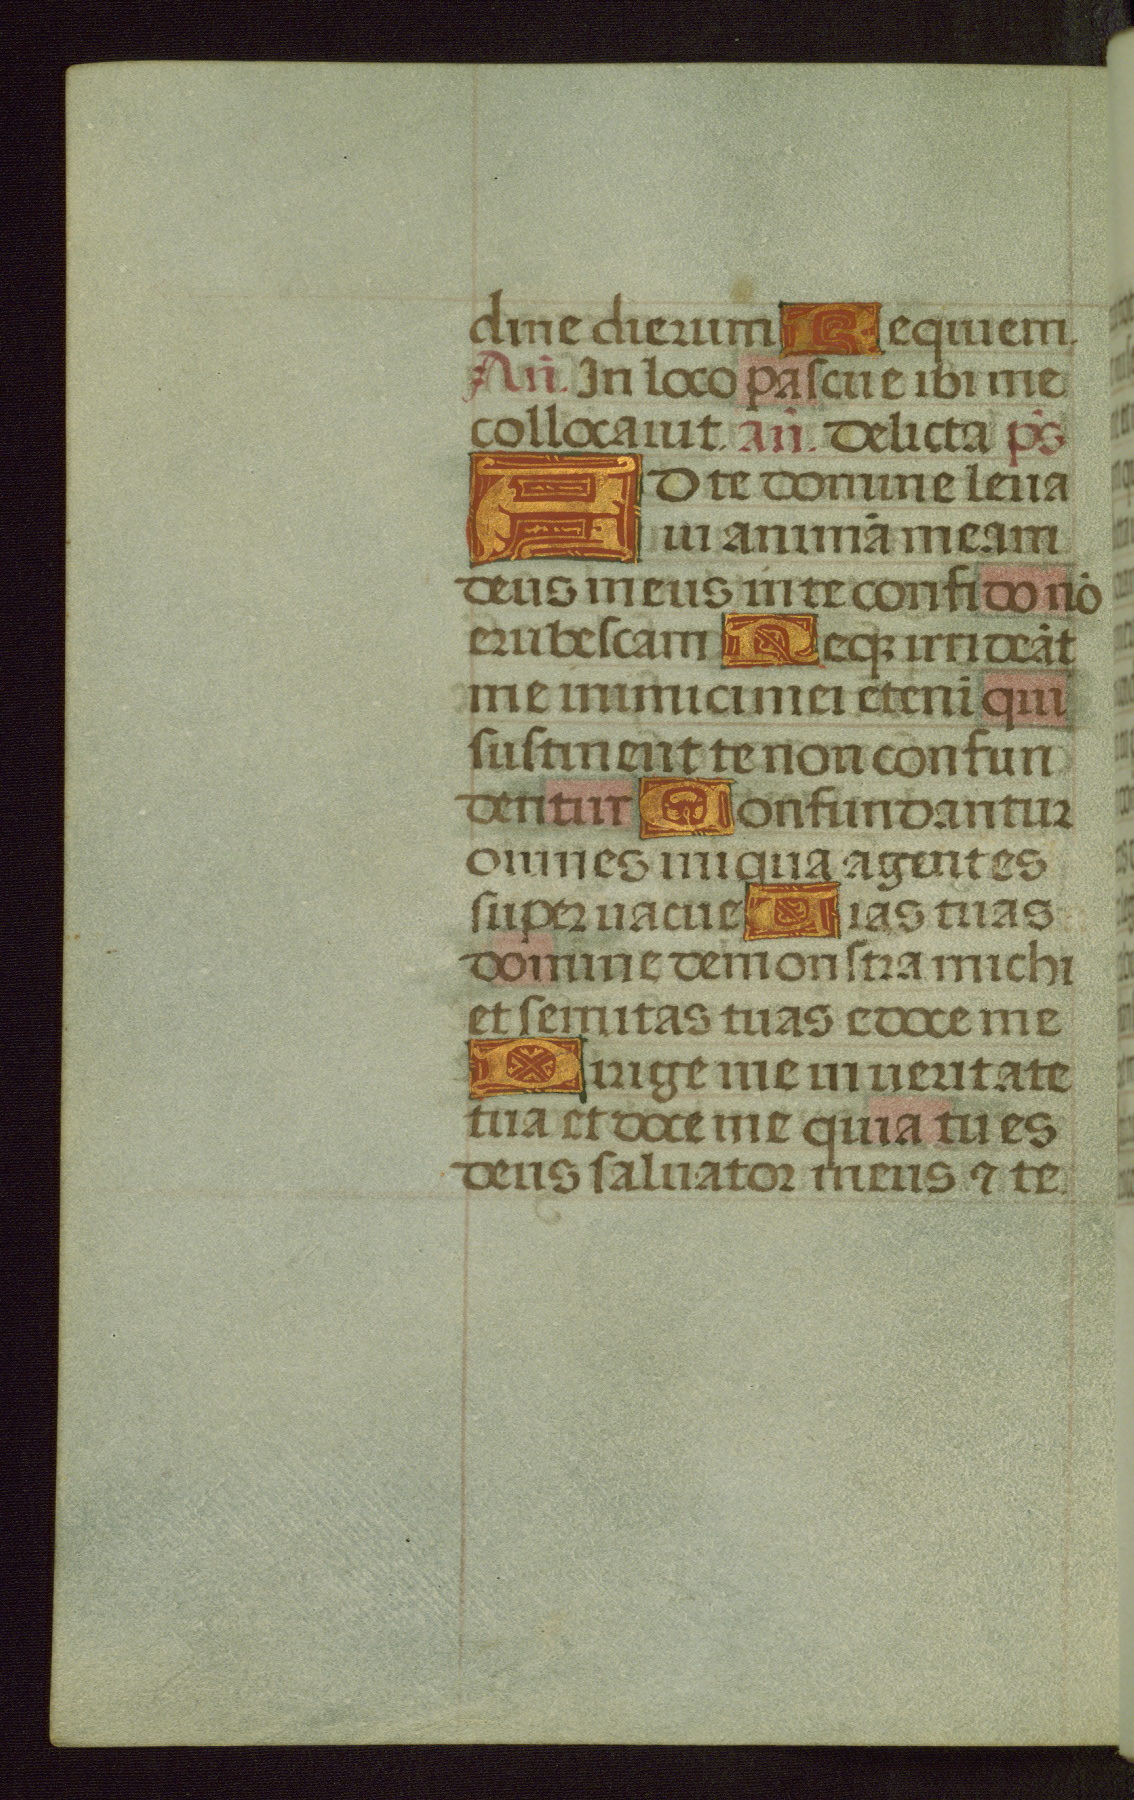 dine dierum Requiem.
An̄. In loco pascue ibi me
collocauit. an̄. Delicta ps̄
AD te domine leua
ui animā meam
deus meus in te confido nō
erubescam Neqꝫ irrideāt
me inimici mei etenī qui
sustinent te non confun
dentur Confundantur
omnes iniqua agentes
superuacue Uias tuas
domine demonstra michi
et semitas tuas edoce me
Dirige me in ueritate
tua et doce me quia tu es
deus saluator meus ⁊ te